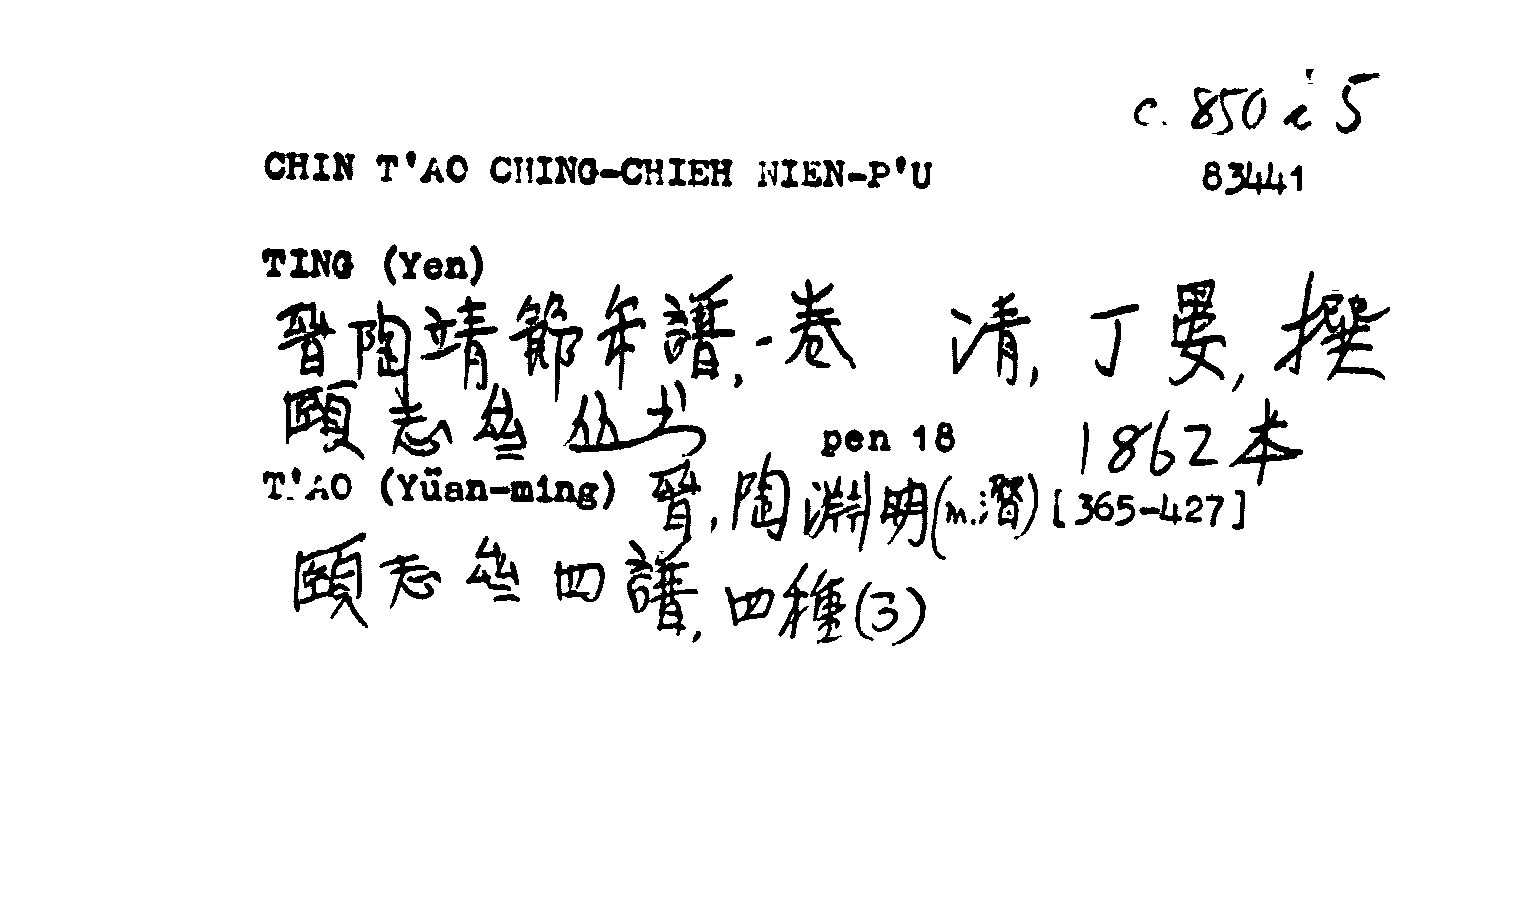 c. 850 i 5
CHIN T'AO CHING-CHIEH NIEN-P'U 83441
TING (Yen)
晉陶靖節年譜,一卷 清,丁晏,撰
頤志齋丛书 pen 18 1862本
T'AO (Yüan-ming) 晉,陶淵明(m.潛) [365-427]
頤志齋四譜,四種(3)